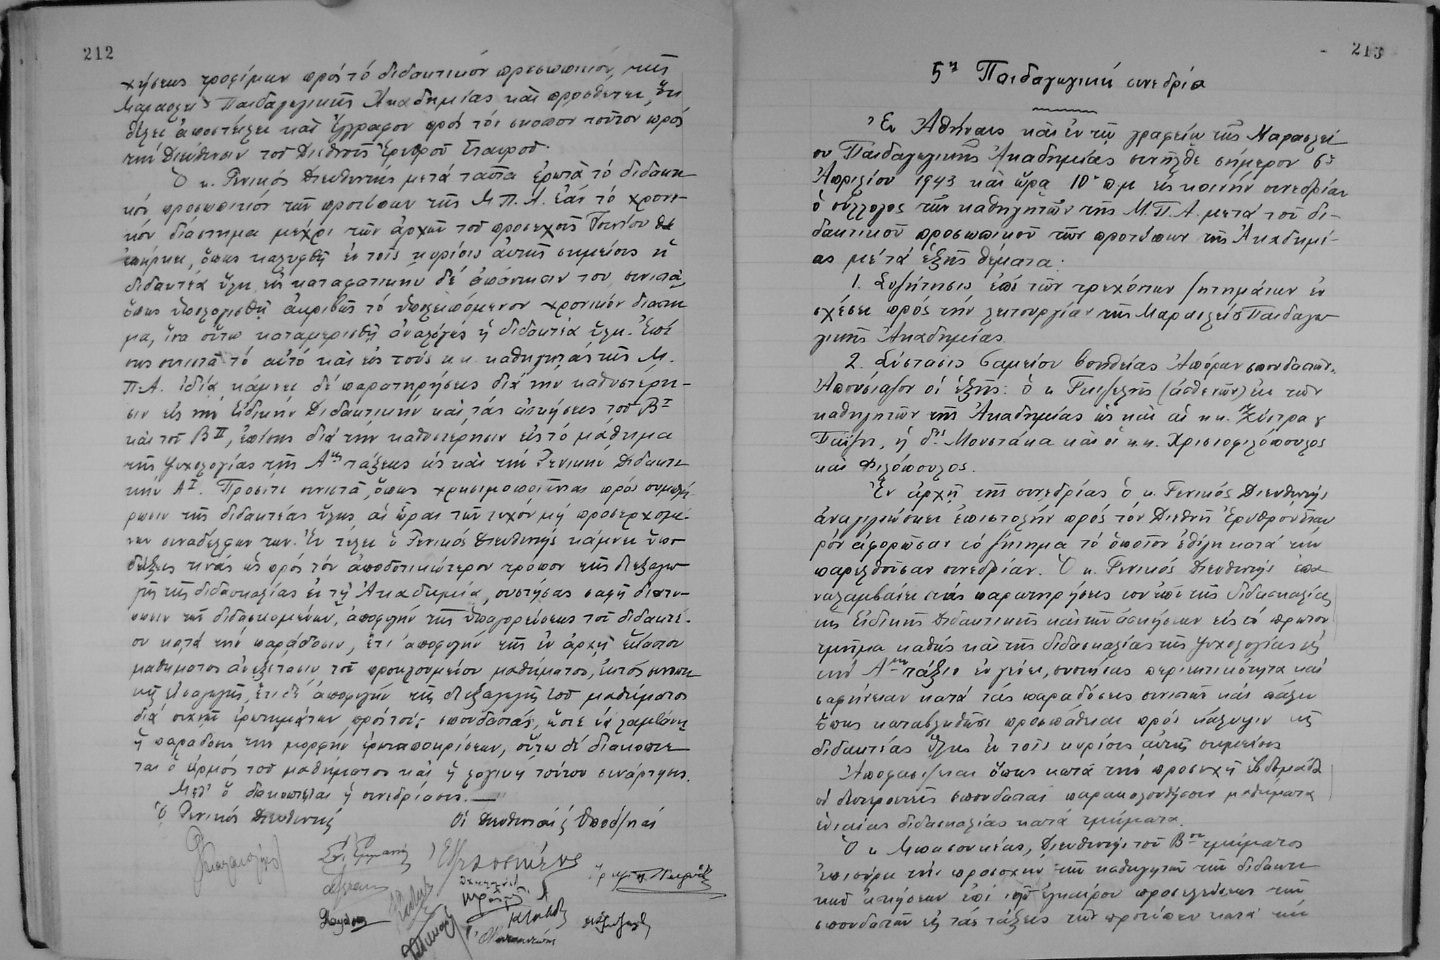 212
χήσεως τροφίμων πρός τό διδακτικόν προσωπικόν τῆς
Μαρασλείου Παιδαγωγικῆς Ἀκαδημίας καί προσθέτει, ὅτι
θέλει ἀποστείλει καί ἔγγραφον πρός τόν σκοπόν τοῦτον πρός
τήν Διεύθυνσιν τοῦ Διεθνοῦς Ἐρυθροῦ Σταυροῦ.
Ὁ κ. Γενικός Διευθυντής μετά ταῦτα ἐρωτᾷ τό διδακτι-
κόν προσωπικόν τῶν προτύπων τῆς Μ.Π.Α. ἐάν τό χρονι-
κόν διάστημα μέχρι τῶν ἀρχῶν τοῦ προσεχοῦς Ἰουνίου θά
ἐπήρκει, ὅπως καλυφθῇ ἐν τοῖς κυρίοις αὐτῆς σημείοις ἡ
διδακτέα ὕλη, εἰς καταφατικήν δέ ἀπάντησιν του συνιστᾷ,
ὅπως ὑπολογισθῇ ἀκριβῶς τό ὑπολειπόμενον χρονικόν διάστη-
μα, ἵνα οὕτω καταμερισθῇ ἀναλόγως ἡ διδακτέα ὕλη. Ἐπί-
σης συνιστᾷ τό αὐτό καί εἰς τούς κ.κ. καθηγητάς τῆς Μ.
Π.Α. ἰδίᾳ κάμνει δέ παρατηρήσεις διά τήν καθυστέρη-
σιν εἰς τήν Εἰδικήν Διδακτικήν καί τάς ἀσκήσεις τοῦ ΒΙ
καί τοῦ ΒΙΙ, ἐπίσης διά τήν καθυστέρησιν εἰς τό μάθημα
τῆς Ψυχολογίας τῆς Αης τάξεως ὡς καί τήν Γενικήν Διδακτι-
κήν ΑΙ. Προσέτι συνιστᾷ, ὅπως χρησιμοποιοῦνται πρός συμπλή-
ρωσιν τῆς διδακτέας ὕλης αἱ ὧραι τῶν τυχόν μή προσερχομέ-
νων συναδέλφων των. Ἐν τέλει ὁ Γενικός Διευθυντής κάμνει ὑπο-
δείξεις τινάς ὡς πρός τόν ἀποδοτικώτερον τρόπον τῆς διεξαγω-
γῆς τῆς διδασκαλίας ἐν τῇ Ἀκαδημίᾳ, συστήσας σαφῆ διατύ-
πωσιν τῶν διδασκομένων, ἀποφυγήν τῆς ὑπαγορεύσεως τοῦ διδακτέ-
ου κατά τήν παράδοσιν, ἔτι ἀποφυγήν τῆς ἐν ἀρχῇ ἑκάστου
μαθήματος ἀνεξετάσεως τοῦ προηγουμένου μαθήματος, ἐκτός συνοπτι-
κῆς εἰσαγωγῆς, ἔτι δέ ἀποφυγήν τῆς διεξαγωγῆς τοῦ μαθήματος
διά συχνῶν ἐρωτημάτων πρός τούς σπουδαστάς, ὥστε νά λαμβάνῃ
ἡ παράδοσις τήν μορφήν ἐρωταποκρίσεων, οὕτω δέ διακόπτε-
ται ὁ εἱρμός τοῦ μαθήματος καί ἡ λογική τούτου συνάρτησις.
Μεθ' ὅ διακόπτεται ἡ συνεδρίασις.—
Ὁ Γενικός Διευθυντής
Οἱ Διευθυνταί ς Ὑποδ/νταί
213
5η Παιδαγωγική συνεδρία
Ἐν Ἀθήναις καί ἐν τῷ γραφείῳ τῆς Μαρασλεί-
ου Παιδαγωγικῆς Ἀκαδημίας συνῆλθε σήμερον 6ῃ
Ἀπριλίου 1943 καί ὥρα 10ῃ π.μ. εἰς κοινήν συνεδρίαν
ὁ σύλλογος τῶν καθηγητῶν τῆς Μ.Π.Α. μετά τοῦ δι-
δακτικοῦ προσωπικοῦ τῶν προτύπων τῆς Ἀκαδημί-
ας μέ τά ἑξῆς θέματα:
1. Συζήτησις ἐπί τῶν τρεχόντων ζητημάτων ἐν
σχέσει πρός τήν λειτουργίαν τῆς Μαρασλείου Παιδαγω-
γικῆς Ἀκαδημίας.
2. Σύστασις ταμείου βοηθείας Ἀπόρων σπουδαστῶν.
Ἀπουσίαζον οἱ ἑξῆς: ὁ κ. (ἀσθενῶν) ἐκ τῶν
καθηγητῶν τῆς Ἀκαδημίας ὡς καί αἱ κ.κ.
ἡ δίς Μουστάκα καί οἱ κ.κ. Χριστοφιλόπουλος
καί Φιλόπουλος.
Ἐν ἀρχῇ τῆς συνεδρίας ὁ κ. Γενικός Διευθυντής
ἀναγιγνώσκει ἐπιστολήν πρός τόν Διεθνῆ Ἐρυθρόν Σταυ-
ρόν ἀφορῶσαν τό ζήτημα τό ὁποῖον ἐθίγη κατά τήν
παρελθοῦσαν συνεδρίαν. Ὁ κ. Γενικός Διευθυντής ἐπα-
ναλαμβάνει τάς παρατηρήσεις του ἐπί τῆς διδασκαλίας
τῆς Εἰδικῆς Διδακτικῆς καί τῶν ἀσκήσεων εἰς τό πρῶτον
τμῆμα καθώς καί τῆς διδασκαλίας τῆς Ψυχολογίας εἰς
τήν Αην τάξιν ἐν γένει, συστήσας περιεκτικότητα καί
σαφήνειαν κατά τάς παραδόσεις συνιστῶν καί πάλιν
ὅπως καταβληθῶσι προσπάθειαι πρός κάλυψιν τῆς
διδακτέας ὕλης ἐν τοῖς κυρίοις αὐτῆς σημείοις.
Ἀποφασίζεται ὅπως κατά τήν προσεχῆ ἑβδομάδα
οἱ δευτεροετεῖς σπουδασταί παρακολουθήσουν μαθήματα
ἑνιαίας διδασκαλίας κατά τμήματα.
Ὁ κ. Μπασουκέας, Διευθυντής τοῦ Βου τμήματος
ἐπισύρει τήν προσοχήν τῶν καθηγητῶν τῶν διδακτι-
κῶν ἀσκήσεων ἐπί τῆς ἐγκαίρου προσελεύσεως τῶν
σπουδαστῶν εἰς τάς τάξεις τῶν προτύπων κατά τήν